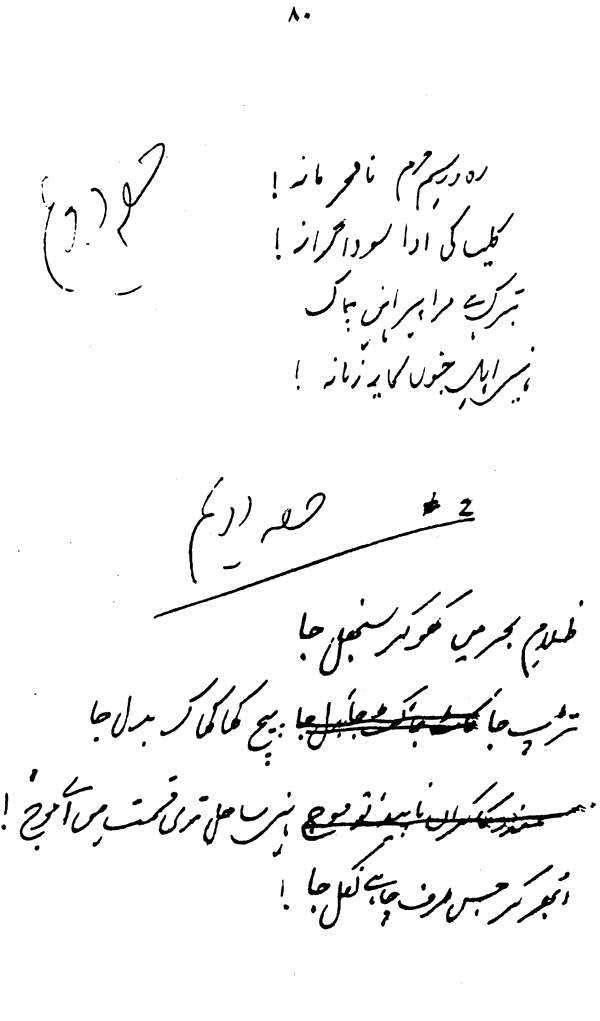 ۸۰
رہ و رسمِ حرم نا محرمانہ !
کلیسا کی ادا سوداگرانہ !
تبرک ہے مرا پیراہنِ چاک
نہیں اہلِ جنوں کا یہ زمانہ !
2
حصہ دویم
ظلامِ بحر میں کھو کر سنبھل جا
تڑپ جا پیچ کھا کھا کر بدل جا
نہیں ساحل تری قسمت میں اے موج !
ابھر کر جس طرف چاہے نکل جا !